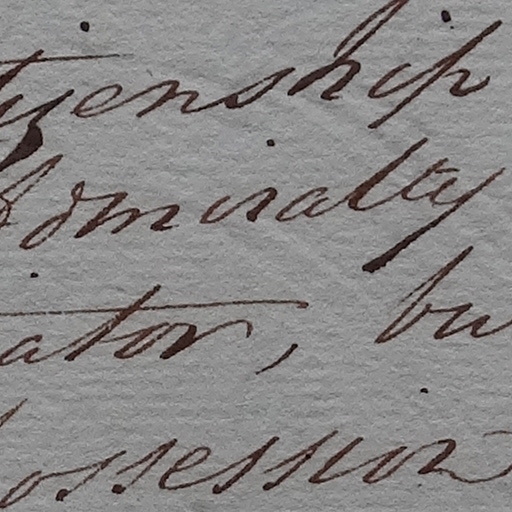 tizenship
Admiralty
ator, bu
ossession